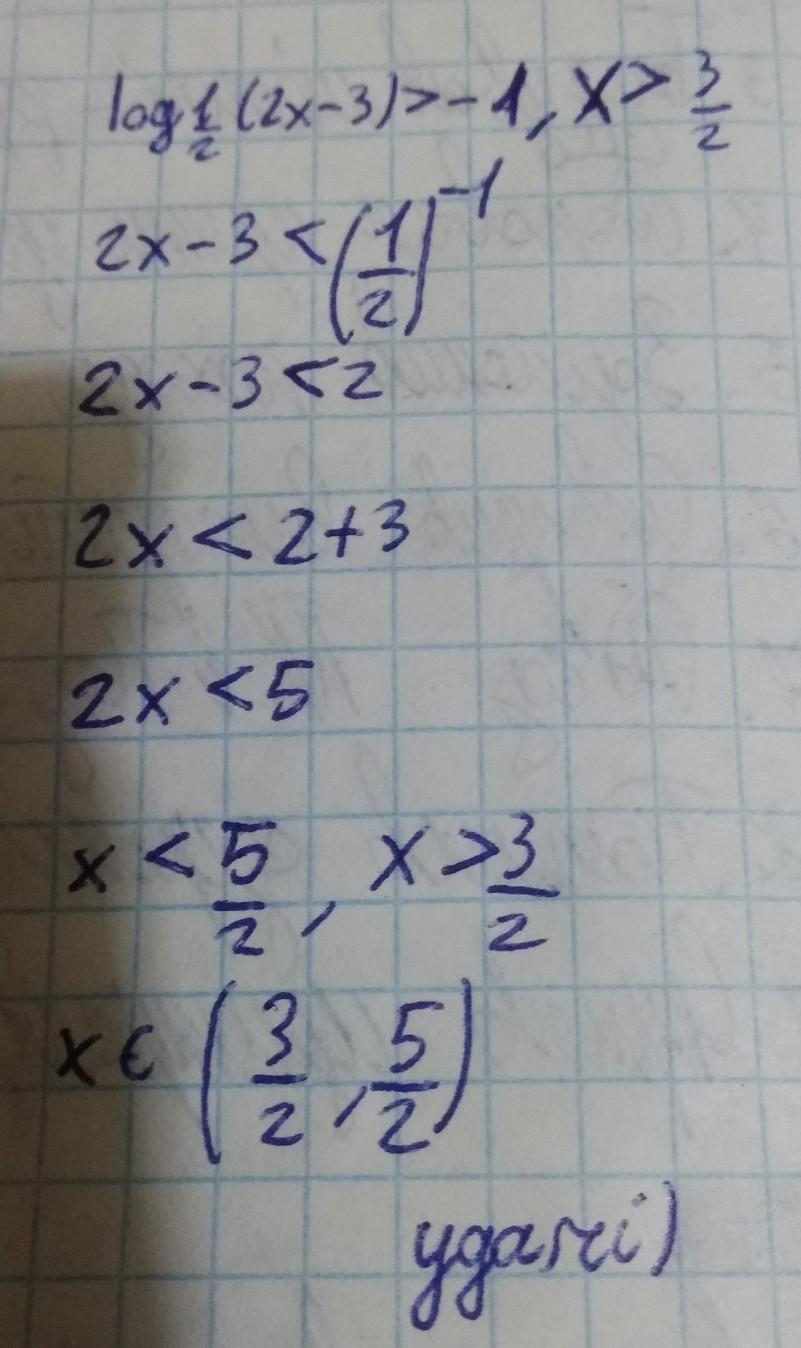 log 1/2 (2x-3)>-1, x> 3/2
2x-3<(1/2)^-1
2x-3<2
2x<2+3
2x<5
x<5/2, x>3/2
xϵ (3/2, 5/2)
удачі)